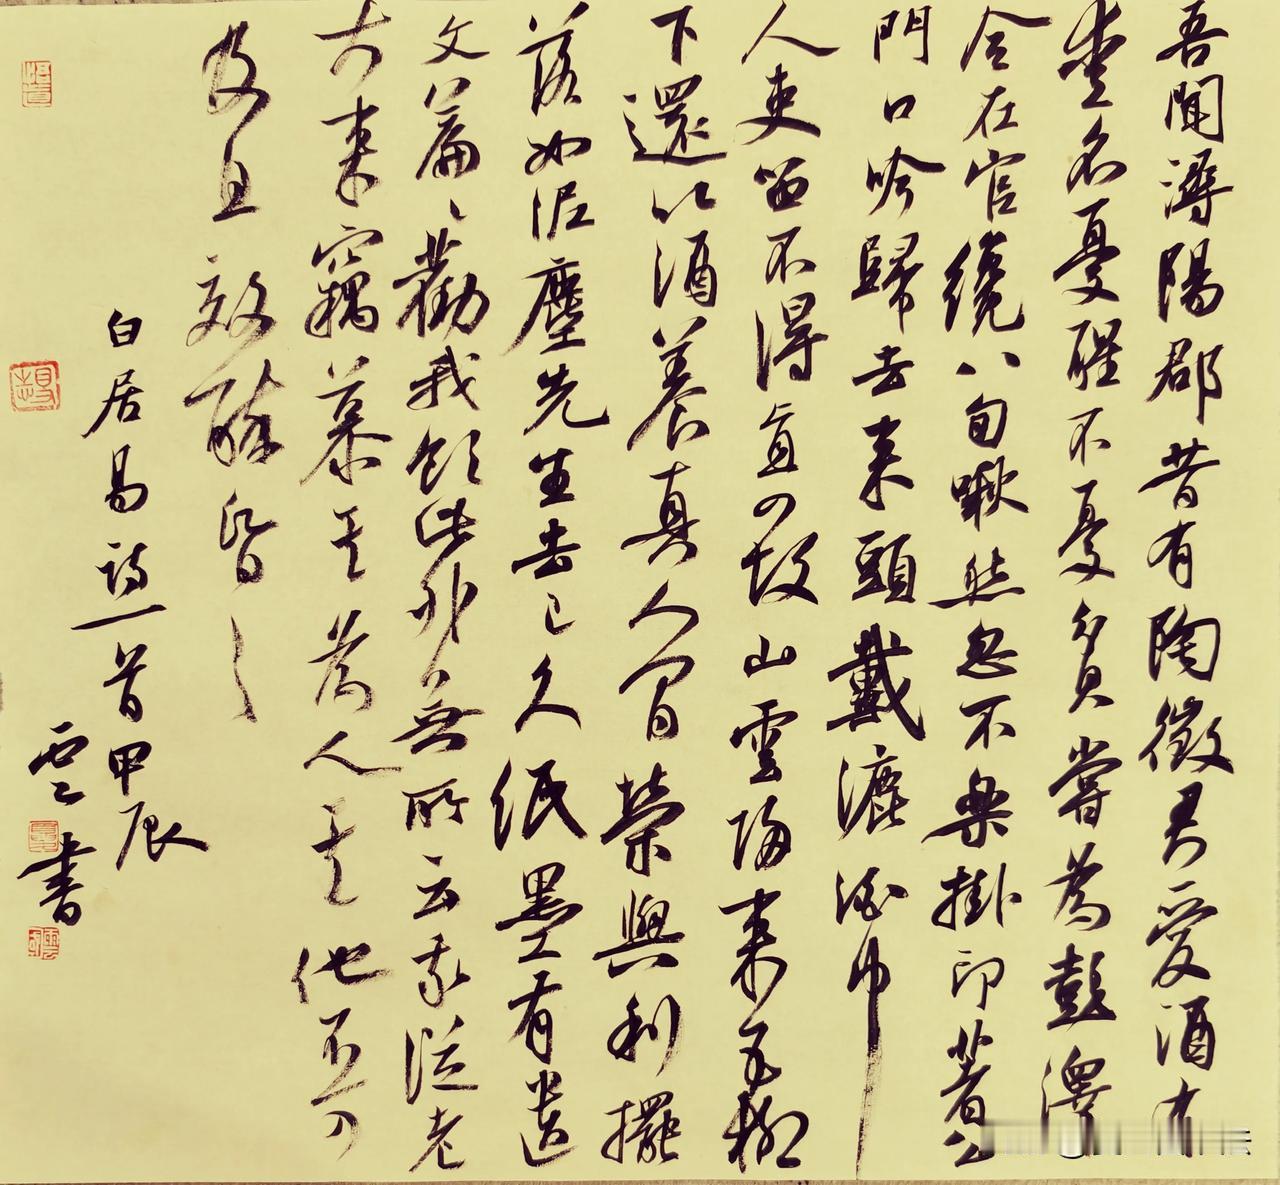 吾聞潯陽郡昔有陶徵君愛酒不
愛名憂醒不憂貧嘗為彭澤
令在官纔八旬愀然忽不樂掛印著公
門口吟歸去来頭戴漉酒巾
人吏留不得直入故山雲歸来五柳
下還以酒養真人間榮與利擺
落如泥塵先生去已久紙墨有遺
文篇篇勸我飲此外無所云我從老
大来竊慕其為人其他不可
及且效醉昏昏
白居易詩一首甲辰
雲書